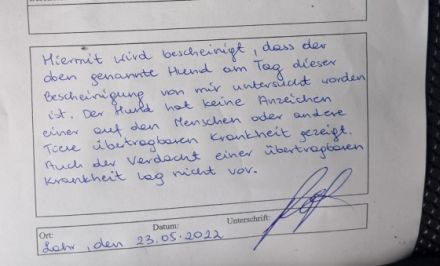 Hiermit wird bescheinigt, dass der
oben genannte Hund am Tag dieser
Bescheinigung von mir untersucht worden
ist. Der Hund hat keine Anzeichen
einer auf den Menschen oder andere
Tiere übertragbaren Krankheit gezeigt.
Auch der Verdacht einer übertragbaren
Krankheit lag nicht vor.
Ort: Datum: Unterschrift:
Lahr, den 23.05.2022